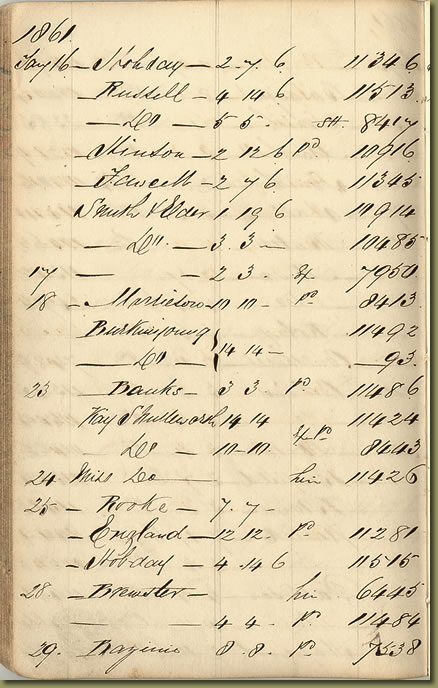 1861
16 – Hobday – 2 . 7 . 6 11346
– Russell – 4 14 6 11513
– Do – 5 5 . 8417
– Stinson – 2 12 6 pd 10916
– Fawcett – 2 7 6 11345
Smith & Elder 1 19 6 10914
– Do 3 . 3 – 10485
17 – – 2 3 . 7950
18 – – 10 10 – pd 8413
11492
– Do } 14 14 – – 93
23 – Banks – 3 3 pd 11486
Kay Shuttleworth 14 14 11424
Do – 10 – 10 . 8443
24 Miss Do – 11426
25 – Rooke – 7 . 7 –
– England – 12 12 . pd 11281
– Hobday – 4 . 14 6 11515
28 – Brewster – 6445
– 4 4 . pd 11484
29 . 8 . 8 . pd 7538